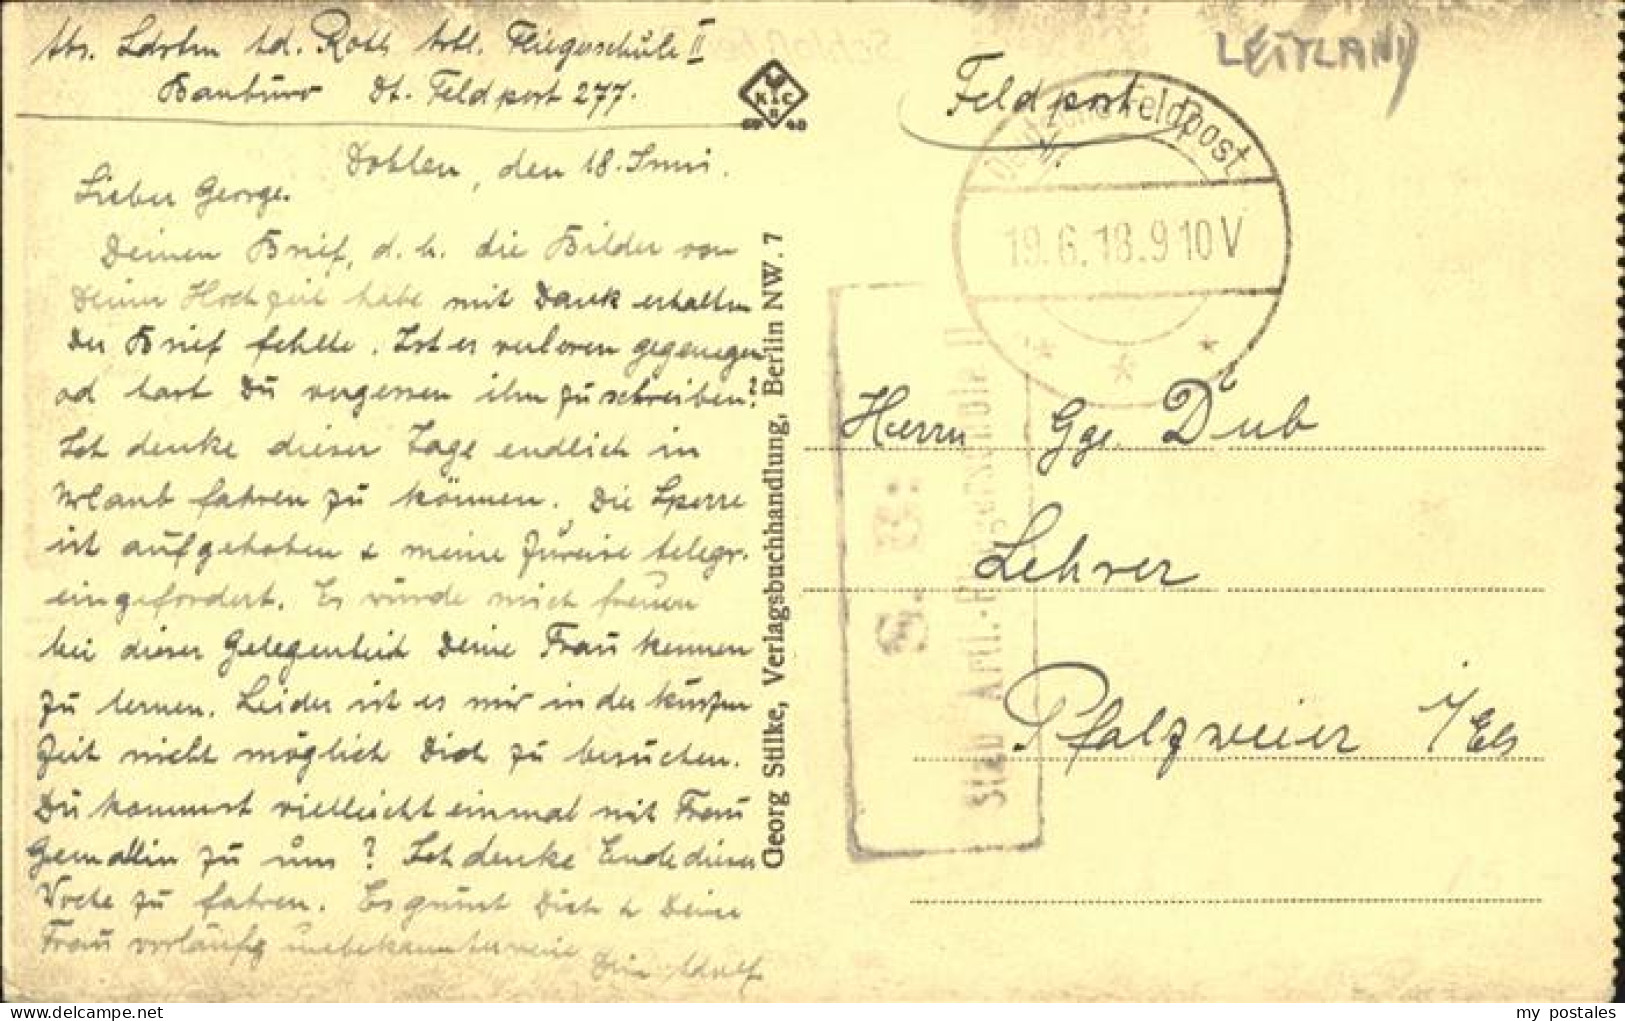 Abs. Ldstm Ad. Roth Artl. Fliegerschule II
Baubüro Dt. Feldpost 277.
Dohlen, den 18. Juni.
Lieber George.
Deinen Brief, d. h. die Bilder von
Deiner Hochzeit habe mit Dank erhalten
Der Brief fehlte. Ist er verloren gegangen
od hast Du vergessen ihn zu schreiben?
Ich denke dieser Tage endlich in
Urlaub fahren zu können. Die Sperre
ist aufgehoben & meine telegr.
eingefordert. Es würde mich freuen
bei dieser Gelegenheit Deine Frau kennen
zu lernen. Leider ist es mir in der kurzen
Zeit nicht möglich Dich zu besuchen.
Du kommst vielleicht einmal mit Frau
Gemahlin zu uns? Ich denke Ende dieser
Woche zu fahren. Es grüsst Dich & Deine
Frau vorläufig unbekannterweise
Dein Adolf
K C
69 40
Georg Stilke, Verlagsbuchhandlung, Berlin NW. 7
LETTLAND
Feldpost
Deutsche Feldpost
19.6.18.9 10 V
S. B.
Stab Artl.-Fliegerschule II
Herrn Gg. Dub
Lehrer
Pfalzweier i/Els
my postales